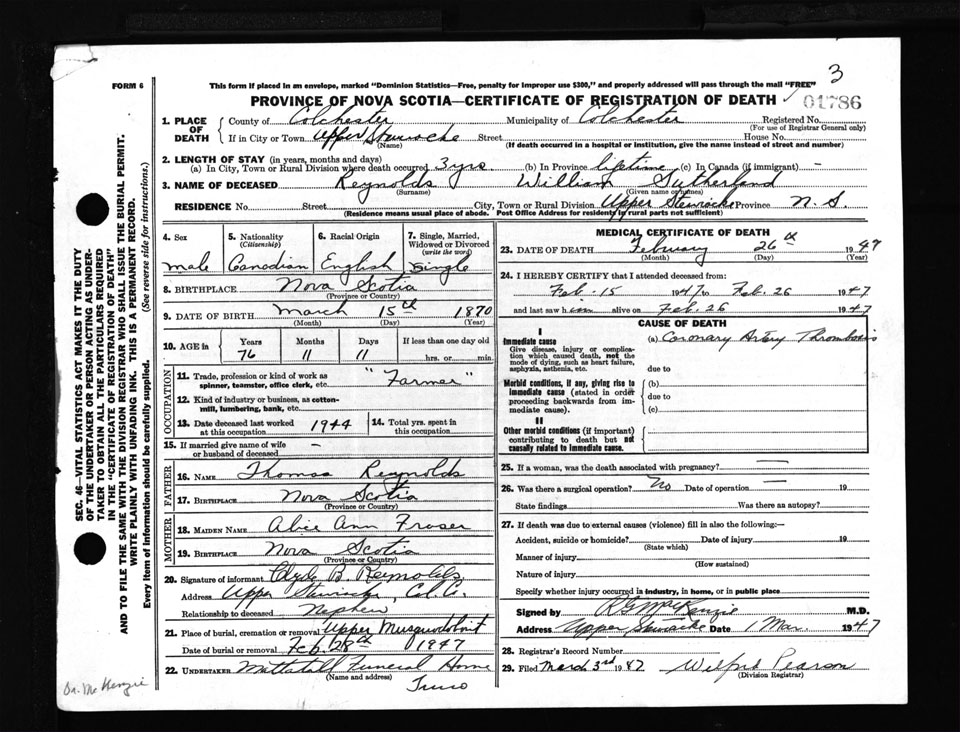 3
This form if placed in an envelope, marked "Dominion Statistics—Free, penalty for improper use $300," and properly addressed will pass through the mail "FREE"
FORM 6
PROVINCE OF NOVA SCOTIA—CERTIFICATE OF REGISTRATION OF DEATH
01786
1. PLACE OF DEATH
County of Colchester Municipality of Colchester Registered No.
(For use of Registrar General only)
If in City or Town Upper Stewiacke Street House No.
(Name) (If death occurred in a hospital or institution, give the name instead of street and number)
2. LENGTH OF STAY (in years, months and days)
(a) In City, Town or Rural Division where death occurred 3 yrs. (b) In Province lifetime (c) In Canada (if immigrant) -
3. NAME OF DECEASED Reynolds William Sutherland
(Surname) (Given name or names)
RESIDENCE No. Street City, Town or Rural Division Upper Stewiacke Province N. S.
(Residence means usual place of abode. Post Office Address for residents in rural parts not sufficient)
4. Sex
male
5. Nationality
(Citizenship)
Canadian
6. Racial Origin
English
7. Single, Married,
Widowed or Divorced
(write the word)
Single
8. BIRTHPLACE Nova Scotia
(Province or Country)
9. DATE OF BIRTH March 15th 1870
(Month) (Day) (Year)
10. AGE in
Years Months Days If less than one day
76 11 11 hrs. or min.
OCCUPATION
11. Trade, profession or kind of work as
spinner, teamster, office clerk, etc. "Farmer"
12. Kind of industry or business, as cotton-
mill, lumbering, bank, etc.
13. Date deceased last worked
at this occupation 1944
14. Total yrs. spent in
this occupation
15. If married give name of wife
or husband of deceased -
FATHER
16. Name Thomas Reynolds
17. Birthplace Nova Scotia
(Province or Country)
MOTHER
18. MAIDEN NAME Alice Ann Fraser
19. BIRTHPLACE Nova Scotia
(Province or Country)
20. Signature of informant Clyde B. Reynolds
Address Upper Stewiacke, Col. Co.
Relationship to deceased Nephew
21. Place of burial, cremation or removal Upper Musquodoboit
Date of burial or removal Feb. 28th 1947
22. UNDERTAKER Mattatall Funeral Home
(Name and address)
Truro
MEDICAL CERTIFICATE OF DEATH
23. DATE OF DEATH February 26th 1947
(Month) (Day) (Year)
24. I HEREBY CERTIFY that I attended deceased from:
Feb. 15 1947 to Feb. 26 1947
and last saw him alive on Feb. 26 1947
CAUSE OF DEATH
I
Immediate cause
Give disease, injury or complica-
tion which caused death, not the
mode of dying, such as heart failure,
asphyxia, asthenia, etc.
(a) Coronary Artery Thrombosis
due to
Morbid conditions, if any, giving rise to
immediate cause (stated in order
proceeding backwards from im-
mediate cause).
(b)
due to
(c)
II
Other morbid conditions (if important)
contributing to death but not
causally related to immediate cause.
25. If a woman, was the death associated with pregnancy? —
26. Was there a surgical operation? No Date of operation — 19
State findings Was there an autopsy?
27. If death was due to external causes (violence) fill in also the following:—
Accident, suicide or homicide? Date of injury 19
(State which)
Manner of injury
(How sustained)
Nature of injury
Specify whether injury occurred in industry, in home, or in public place
Signed by R G MacKenzie M.D.
Address Upper Stewiacke Date 1 Mar. 1947
28. Registrar's Record Number
29. Filed March 3rd 1947 Wilfred Pearson
(Division Registrar)
SEC. 46—VITAL STATISTICS ACT MAKES IT THE DUTY
OF THE UNDERTAKER OR PERSON ACTING AS UNDER-
TAKER TO OBTAIN ALL THE PARTICULARS REQUIRED
IN THE "CERTIFICATE OF REGISTRATION OF DEATH"
AND TO FILE THE SAME WITH THE DIVISION REGISTRAR WHO SHALL ISSUE THE BURIAL PERMIT.
WRITE PLAINLY WITH UNFADING INK. THIS IS A PERMANENT RECORD.
Every item of Information should be carefully supplied. (See reverse side for instructions.)
Dr. McKenzie